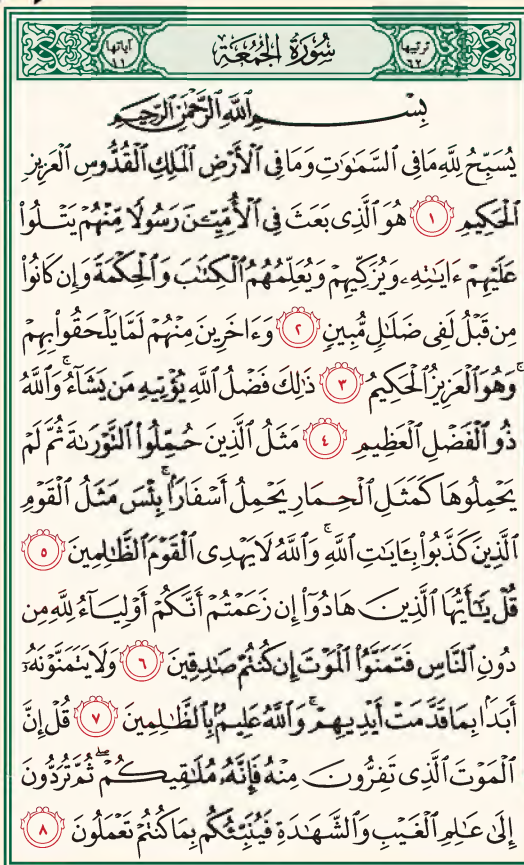 ترتيبها ٦٢ سُورَةُ الجُمُعَة آياتها ١١
بِسْمِ اللَّهِ الرَّحْمَٰنِ الرَّحِيمِ
يُسَبِّحُ لِلَّهِ مَا فِي السَّمَٰوَٰتِ وَمَا فِي الْأَرْضِ الْمَلِكِ الْقُدُّوسِ الْعَزِيزِ
الْحَكِيمِ ١ هُوَ الَّذِي بَعَثَ فِي الْأُمِّيِّـۧنَ رَسُولًا مِّنْهُمْ يَتْلُوا۟
عَلَيْهِمْ ءَايَٰتِهِۦ وَيُزَكِّيهِمْ وَيُعَلِّمُهُمُ الْكِتَٰبَ وَالْحِكْمَةَ وَإِن كَانُوا۟
مِن قَبْلُ لَفِي ضَلَٰلٍ مُّبِينٍ ٢ وَءَاخَرِينَ مِنْهُمْ لَمَّا يَلْحَقُوا۟ بِهِمْ
وَهُوَ الْعَزِيزُ الْحَكِيمُ ٣ ذَٰلِكَ فَضْلُ اللَّهِ يُؤْتِيهِ مَن يَشَآءُ ۚ وَاللَّهُ
ذُو الْفَضْلِ الْعَظِيمِ ٤ مَثَلُ الَّذِينَ حُمِّلُوا۟ التَّوْرَىٰةَ ثُمَّ لَمْ
يَحْمِلُوهَا كَمَثَلِ الْحِمَارِ يَحْمِلُ أَسْفَارًۢا ۚ بِئْسَ مَثَلُ الْقَوْمِ
الَّذِينَ كَذَّبُوا۟ بِـَٔايَٰتِ اللَّهِ ۚ وَاللَّهُ لَا يَهْدِي الْقَوْمَ الظَّٰلِمِينَ ٥
قُلْ يَٰٓأَيُّهَا الَّذِينَ هَادُوٓا۟ إِن زَعَمْتُمْ أَنَّكُمْ أَوْلِيَآءُ لِلَّهِ مِن
دُونِ النَّاسِ فَتَمَنَّوُا۟ الْمَوْتَ إِن كُنتُمْ صَٰدِقِينَ ٦ وَلَا يَتَمَنَّوْنَهُۥٓ
أَبَدًۢا بِمَا قَدَّمَتْ أَيْدِيهِمْ ۚ وَاللَّهُ عَلِيمٌۢ بِالظَّٰلِمِينَ ٧ قُلْ إِنَّ
الْمَوْتَ الَّذِي تَفِرُّونَ مِنْهُ فَإِنَّهُۥ مُلَٰقِيكُمْ ۖ ثُمَّ تُرَدُّونَ
إِلَىٰ عَٰلِمِ الْغَيْبِ وَالشَّهَٰدَةِ فَيُنَبِّئُكُم بِمَا كُنتُمْ تَعْمَلُونَ ٨